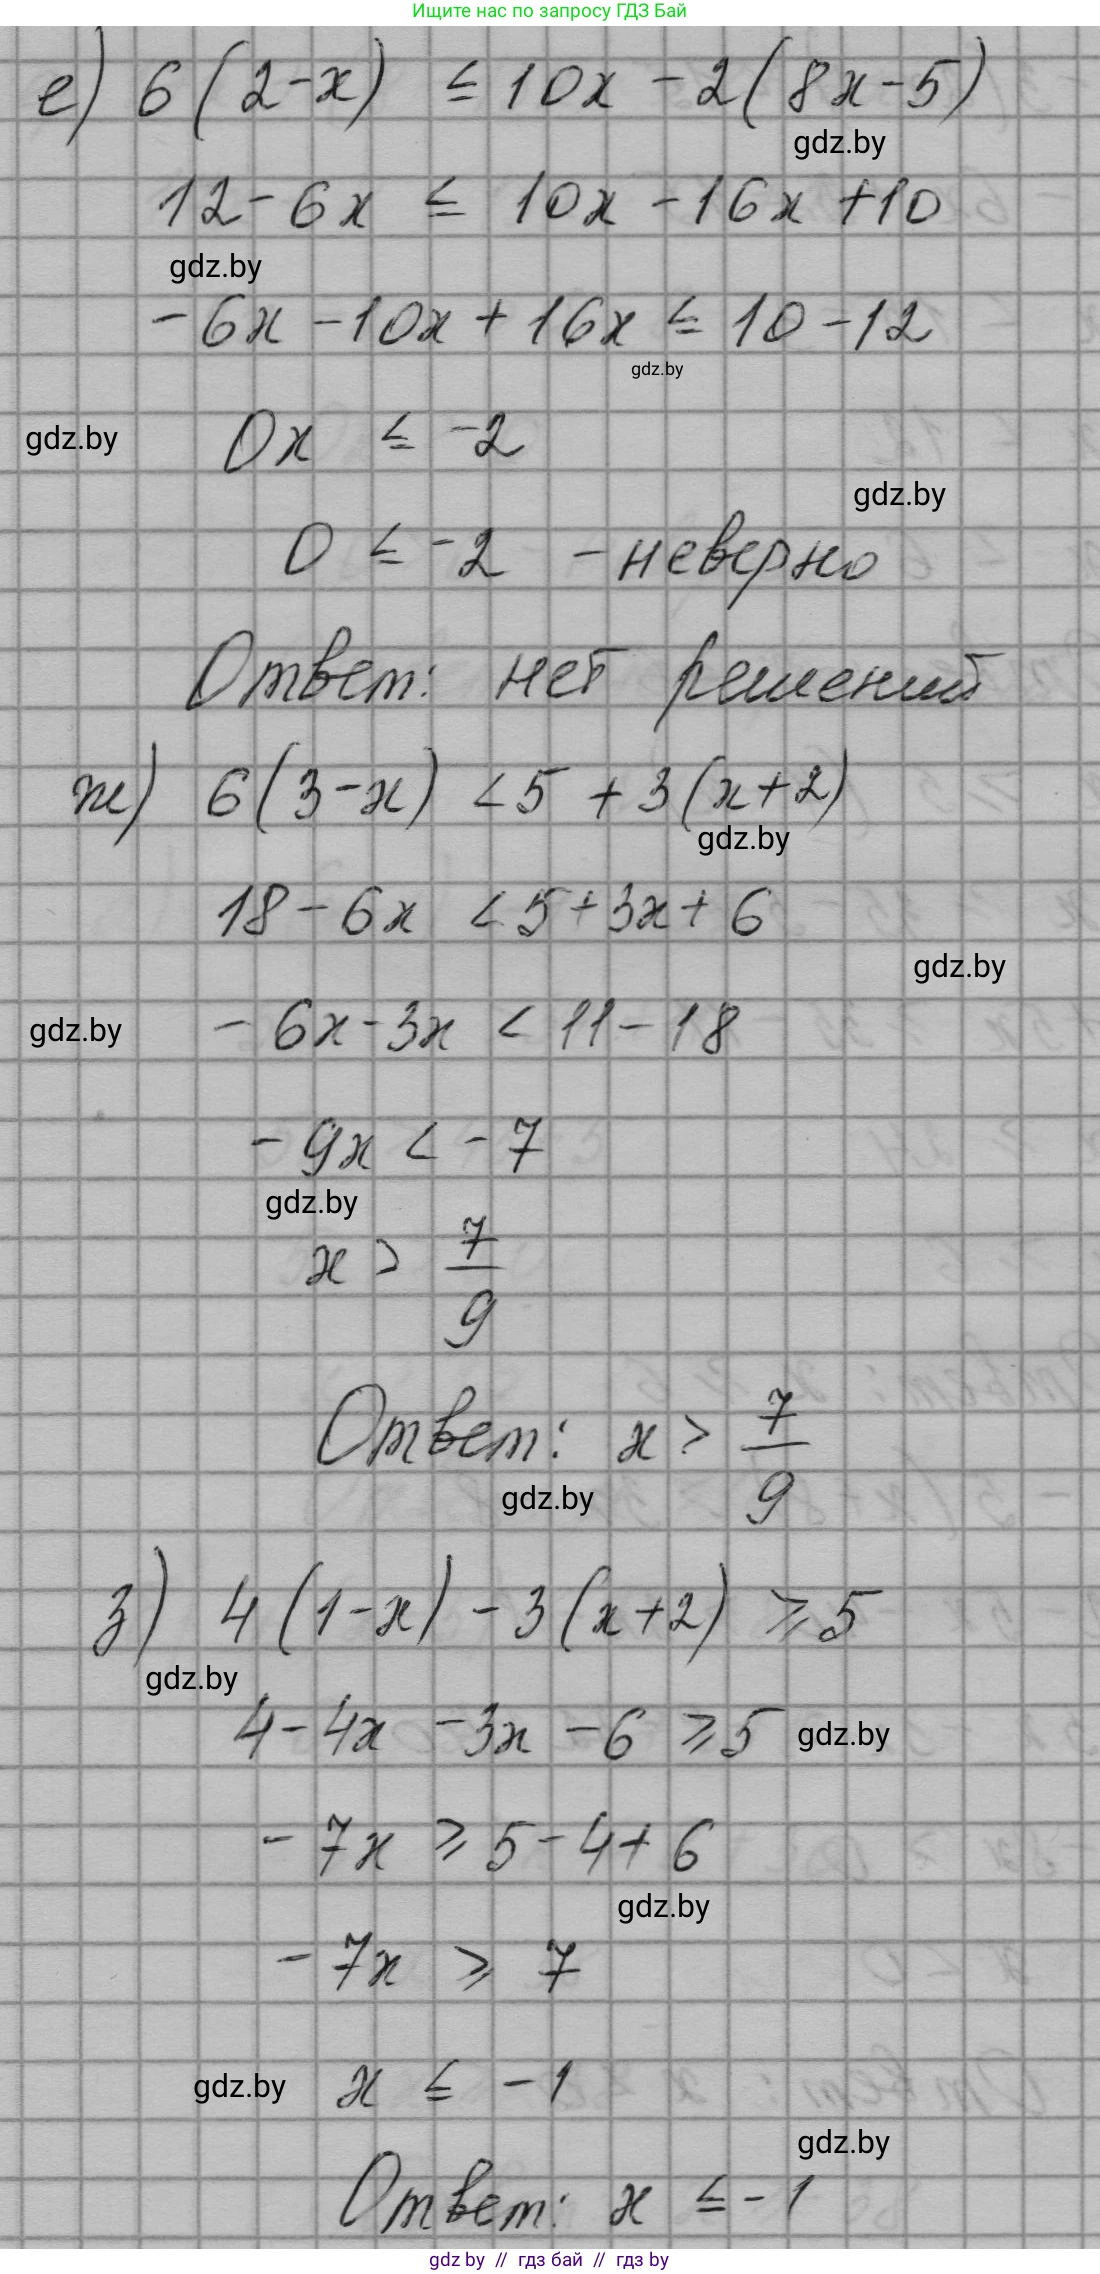 Ищите нас по запросу ГДЗ Бай
е) 6(2-x) ≤ 10x - 2(8x-5)
gdz.by
12 - 6x ≤ 10x - 16x + 10
gdz.by
-6x - 10x + 16x ≤ 10 - 12
gdz.by
gdz.by 0x ≤ -2
gdz.by
0 ≤ -2 - неверно
Ответ: нет решений
ж) 6(3-x) < 5 + 3(x+2)
gdz.by
18 - 6x < 5 + 3x + 6
gdz.by
gdz.by - 6x - 3x < 11 - 18
- 9x < - 7
gdz.by
x > 7/9
Ответ: x > 7/9
gdz.by
з) 4(1-x) - 3(x+2) ≥ 5
gdz.by
4 - 4x - 3x - 6 ≥ 5 gdz.by
- 7x ≥ 5 - 4 + 6
gdz.by
- 7x ≥ 7
gdz.by x ≤ -1
gdz.by
Ответ: x ≤ -1
gdz by // гдз бай // гдз by